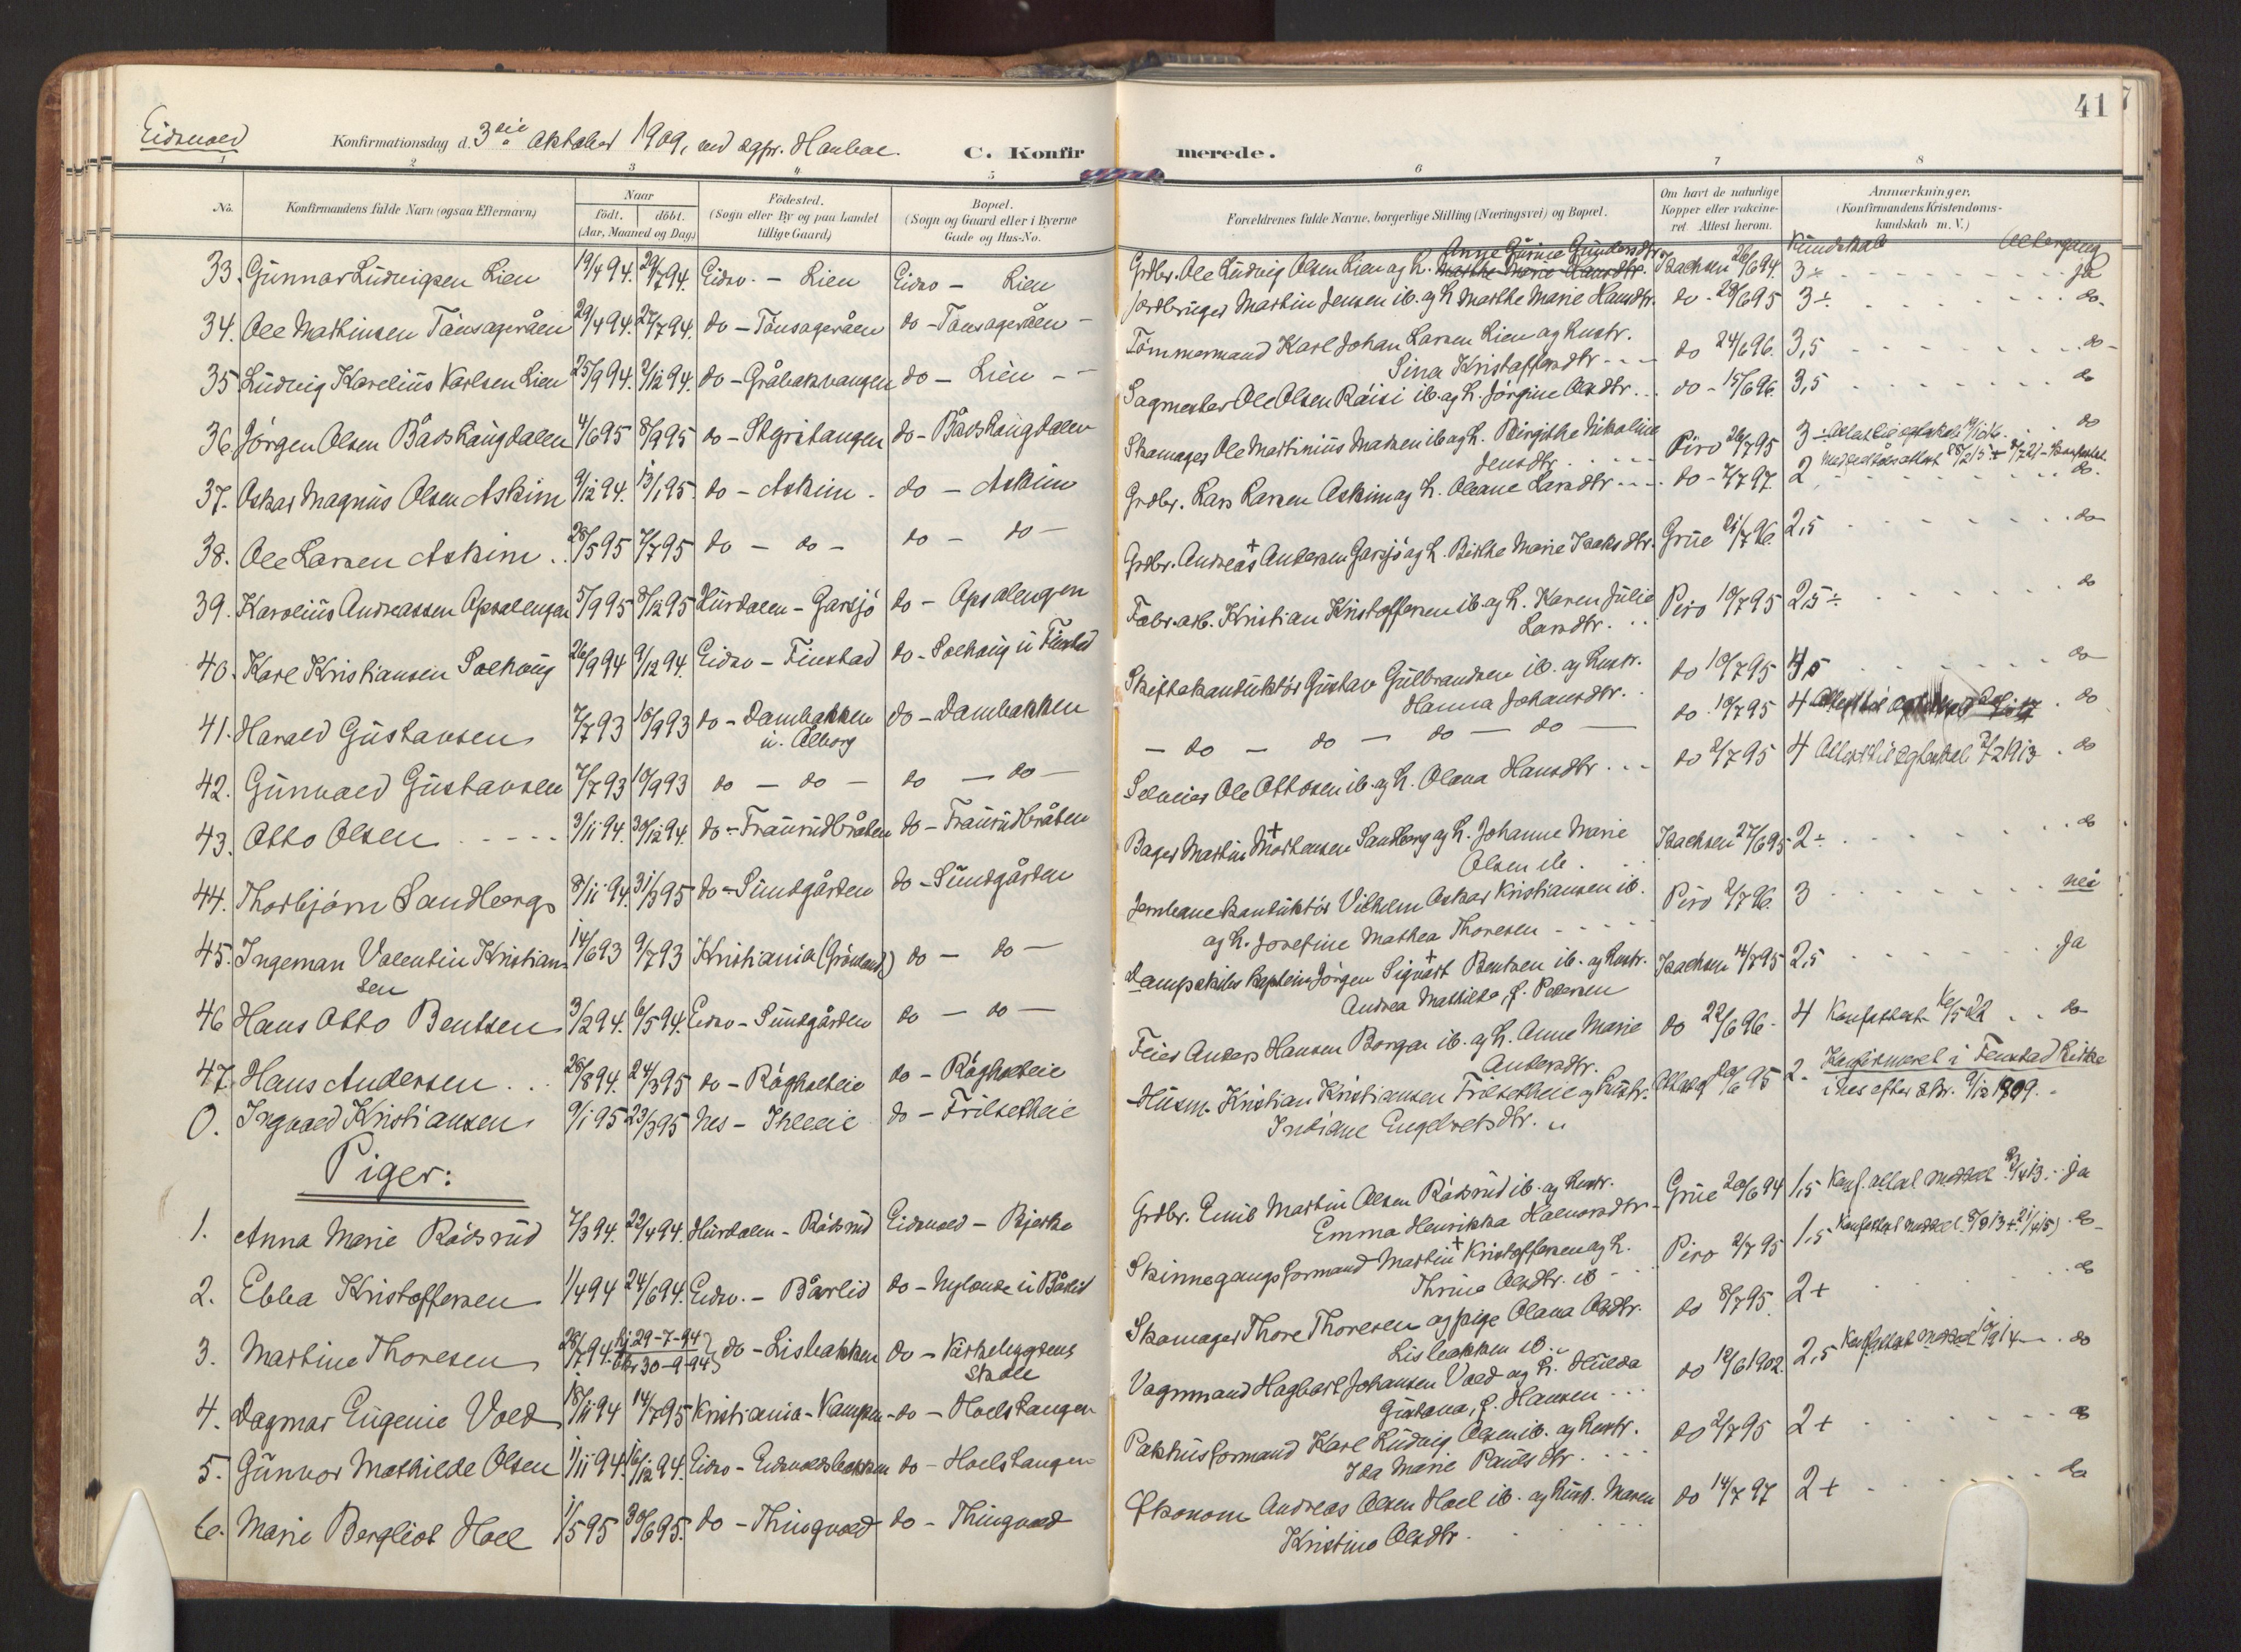 41
Eidsvold
Konfirmationsdag d. 3die Oktober 1909, ved sgpr. Hambae.
C. Konfir merede.
1 2 3 4 5 6 7 8
No.
Konfirmandens fulde Navn (ogsaa Efternavn)
Naar
födt. döbt.
(Aar, Maaned og Dag)
Födested.
(Sogn eller By og paa Landet
tillige Gaard)
Bopæl.
(Sogn og Gaard eller i Byerne
Gade og Hus-No.
Forældrenes fulde Navne, borgerlige Stilling (Næringsvei) og Bopæl.
Om havt de naturlige
Kopper eller vakcine-
ret Attest herom.
Anmærkninger.
(Konfirmandens Kristendoms-
kundskab m. V.)
Kundskab Altergang
33. Gunnar Ludvigsen Lien 19/4 94. 29/7 94. Eidsv. - Lien Eidsv - Lien Grdbr. Ole Ludvig Olsen Lien og h. Marthe Marie Hansdtr. Anne Gurine Gundersdtr. Isachsen 26/6 94. 3÷ ja
34. Ole Martinsen Tånsageråen 29/4 94. 27/7 94. do - Tånsageråen do - Tånsageråen - Jordbruger Martin Jensen ib. og h. Marthe Marie Hansdtr. do - 28/6 95 3÷ do
35 Ludvig Karelius Karlsen Lien 25/9 94. 2/12 94. do - Gråbakvangen do - Lien - - Tömmermand Karl Johan Larsen Lien og hustr.
Sina Kristoffersdtr - - - do 24/6 96. 3,5 do
36. Jörgen Olsen Bårshaugdalen 4/6 95 8/9 95 do - Styritangen do - Bårshaugdalen Sagmester Ole Olsen Räisi ib. og h. Jörgine Olsdtr. do - 15/6 96. 3,5 do
37. Oskar Magnus Olsen Askim 9/12 94. 13/1 95. do - Askim - do - Askim Skomager Ole Martinius Madsen ib og h. Birgithe Nikoline
Jensdtr. Piro 26/7 95 3÷ do
38. Ole Larsen Askim .. 28/5 95 7/7 95 do - do - do - do - Grdbr. Lars Larsen Askim og h. Oleane Larsdtr - - - do - 7/7 97. 2 do
39. Karolius Andreassen Opsalengen 5/9 95 8/12 95 Hurdalen - Garsjö do - Opsalengen Grdbr. Andreas + Andersen Garsjö og h. Birthe Marie Isaksdtr. Grue 21/7 96. 2,5 do
40. Karl Kristiansen Solhaug 26/9 94 9/12 94. Eidsv - Finstad do - Solhaug u Finstad Fabr.arb. Kristian Kristoffersen ib. og h. Karen Julie
Larsdtr. Piro 10/7 95 2,5÷ do
41. Harald Gustavsen 7/7 93 10/9 93 do - Dambakken
u. Ålborg do - Dambakken Skiftekonduktör Gustav Gulbrandsen ib. og hustr.
Hanna Johansdtr. do 10/7 95 do
42. Gunvald Gustavsen 7/7 93 10/9 93 do - do - do - do - - do - do - do - do - do 10/7 95 4 do
43. Otto Olsen - - - - 3/11 94. 30/12 94. do - Traurudbråten do - Traurudbråten Selveier Ole Ottosen ib. og h. Olava Hansdtr. do 2/7 95 4 Attest til egteskab 7/2 1913 do
44. Thorbjörn Sandberg 8/11 94. 31/3 95 do - Sundgården do - Sundgården Bager Martin + Mortensen Sandberg og h. Johanne Marie
Olsen ib. Isachsen 27/6 95 2÷ do
45. Ingeman Valentin Kristian-
sen 14/6 93 9/7 93 Kristiania (Grönland) do - do - Jernbanekonduktör Vilhelm Oskar Kristiansen ib.
og h. Josefine Mathea Thoresen - - - Piro 2/7 96. 3 nei
46 Hans Otto Bentsen 3/2 94. 6/5 94. Eidsv - Sundgården do - do - Dampskibs Kaptein Jörgen Sigvart + Bentsen ib. og hustr.
Andrea Mathilde, f. Petersen Isachsen 14/7 95 2,5 Ja
47. Hans Andersen. .. 26/8 94. 24/3 95 do - Rågholteie do - Rågholteie Feier Anders Hansen Borgen ib. og h. Anne Marie
Andersdtr. do 22/6 96 - 4 Konfattest 16/5 22 do
0. Ingvald Kristiansen 9/1 95 23/3 95 Nes - Ihleeie do - Frilsetheie Husm. Kristian Kristiansen Frilsetheie og hustr.
Indiane Engebretsdtr. Attest 20/6 95 2. Konfirmeret i Fenstad Kirke
i Nes efter
Piger:
1. Anna Marie Rådsrud 7/3 94. 22/4 94. Hurdalen - Rådsrud Eidsvold - Bjerke Grdbr. Emil Martin Olsen Rådsrud ib. og hustr.
Emma Henrikka Halvorsdtr - Grue 20/6 94 1,5 Konf. attest meddel. ja
2. Ebba Kristoffersen 1/4 94 24/6 94. Eidsv. - Bårlid do - Nylende u Bårlid Skinnegangsformand Martin + Kristoffersen og h.
Thrine Olsdtr. ib - Piro 2/7 95 1,5 do
3. Martine Thoresen 28/7 94. hj 29-7-94
Ekr 30-9-94 do - Lisbakken do - Kirkebygdens
Skole Skomager Thore Thoresen og pige Olava Olsdtr.
Lisbakken ib. do 8/7 95. 2+ do
4. Dagmar Eugenie Vold 18/11 94 14/7 95 Kristiania - Kampen - do - Hoelstangen Vognmand Hagbart Johansen Vold og h. Hulda
Gustava, f. Hansen ... do 12/6 1902. 2,5 do
5. Gunvor Mathilde Olsen 1/11 94. 16/12 94. Eidsv - Eidsvoldsbakken do - Hoelstangen Pakhusformand Karl Ludvig Olsen ib. og hustr.
Ida Marie Paulsdtr. do 2/7 95 2+ do
6. Marie Bergliot Hoel 1/5 95 30/6 95. do - Thingvold do - Thingvold Ökonom Andreas Olsen Hoel ib. og hustr. Maren
Kristine Olsdtr. do 14/7 97 2+ do